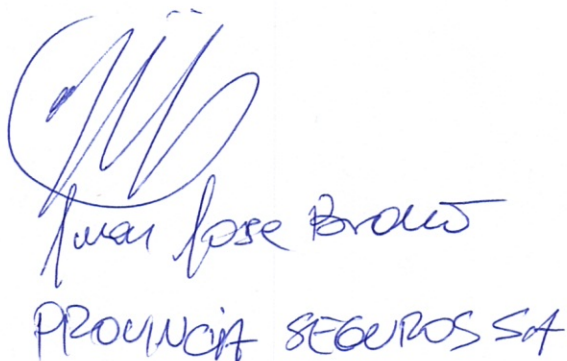 Juan Jose
PROVINCIA SEGUROS SA